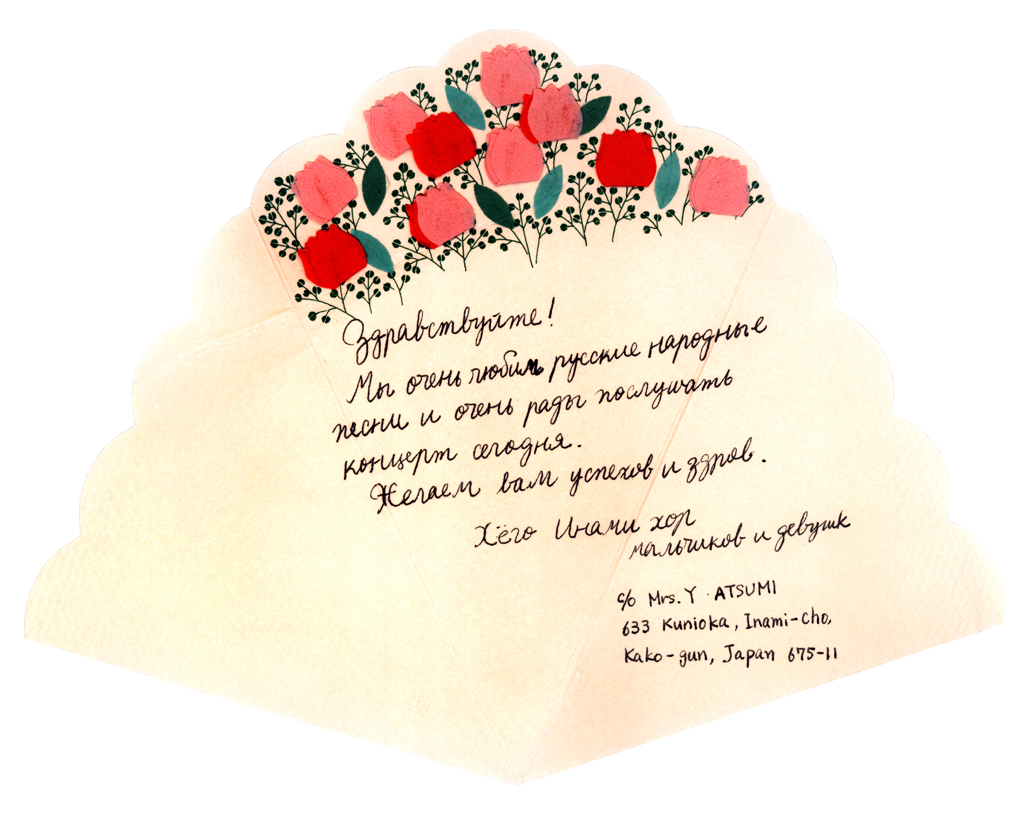 Здравствуйте!
Мы очень любим русские народные
песни и очень рады послушать
концерт сегодня.
Желаем вам успехов и здров.
Хёго Инами хор
мальчиков и девушк
c/o Mrs. Y. ATSUMI
633 Kunioka, Inami-cho,
Kako-gun, Japan 675-11